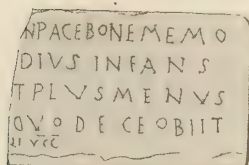 NPACEBONEMEMO
DIVSINFANS
TPLVSMENVS
QVODECEOBIIT